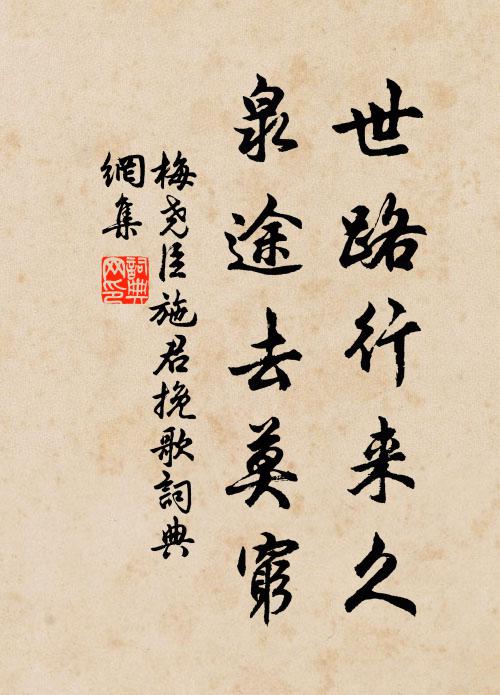 世路行来久
泉途去莫窮
梅堯臣施君挽歌詞典
網集
詞典
网印